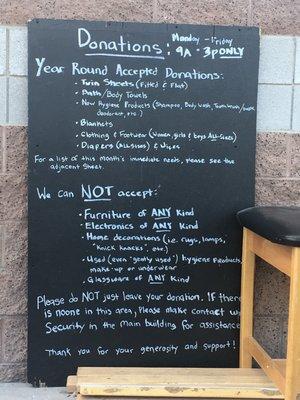 Donations:
Monday - Friday
9A - 3p ONLY
Year Round Accepted Donations:
- Twin Sheets (Fitted & Flat)
- Bath/Body Towels
- New Hygiene Products (Shampoo, Body Wash, Toothbrush/paste
deodorant, etc.)
- Blankets
- Clothing & Footwear (Women, girls & boys All-Sizes)
- Diapers (All Sizes) & Wipes
For a list of this month's immediate needs, please see the
adjacent sheet.
We can NOT accept:
- Furniture of ANY Kind
- Electronics of ANY Kind
- Home decorations (i.e. rugs, lamps,
"knick knacks", etc.)
- Used (even "gently used") hygiene products,
make-up or underwear
- Glassware of ANY Kind
Please do NOT just leave your donation. If there
is noone in this area, Please make contact w
Security in the main building for assistance
Thank you for your generosity and support!